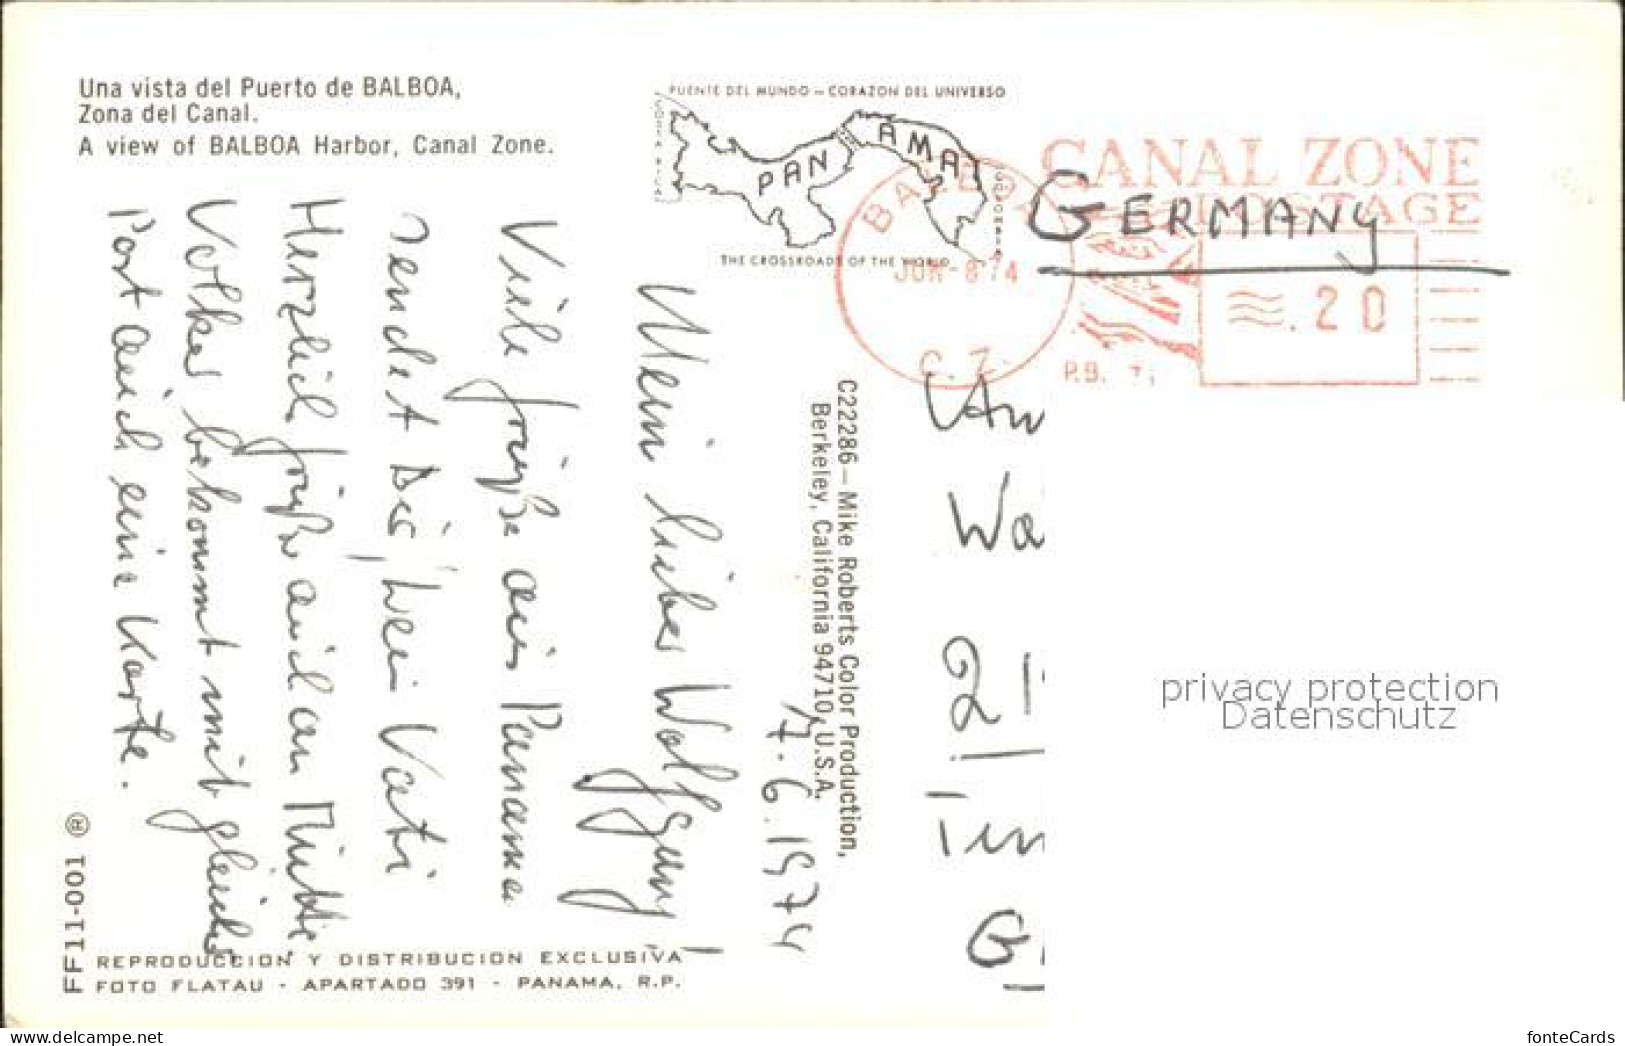 Una vista del Puerto de BALBOA,
Zona del Canal.
A view of BALBOA Harbor, Canal Zone.
PUENTE DEL MUNDO – CORAZON DEL UNIVERSO
COSTA RICA
PANAMA
COLOMBIA
THE CROSSROADS OF THE WORLD
BALBOA
JUN-8'74
C. Z.
CANAL ZONE
POSTAGE
.20
P.B.
GERMANY
7.6.1974
Mein lieber Wolfgang!
Viele Grüße aus Panama
sendet Dir, Dein Vati
Herzliche Grüße auch an Mutti.
Volker bekommt mit gleicher
Post auch eine Karte.
C22286 – Mike Roberts Color Production,
Berkeley, California 94710, U.S.A.
FF11-001 ®
REPRODUCCION Y DISTRIBUCION EXCLUSIVA
FOTO FLATAU - APARTADO 391 - PANAMA, R.P.
Wa
21
G
privacy protection
Datenschutz
www.delcampe.net
fonteCards